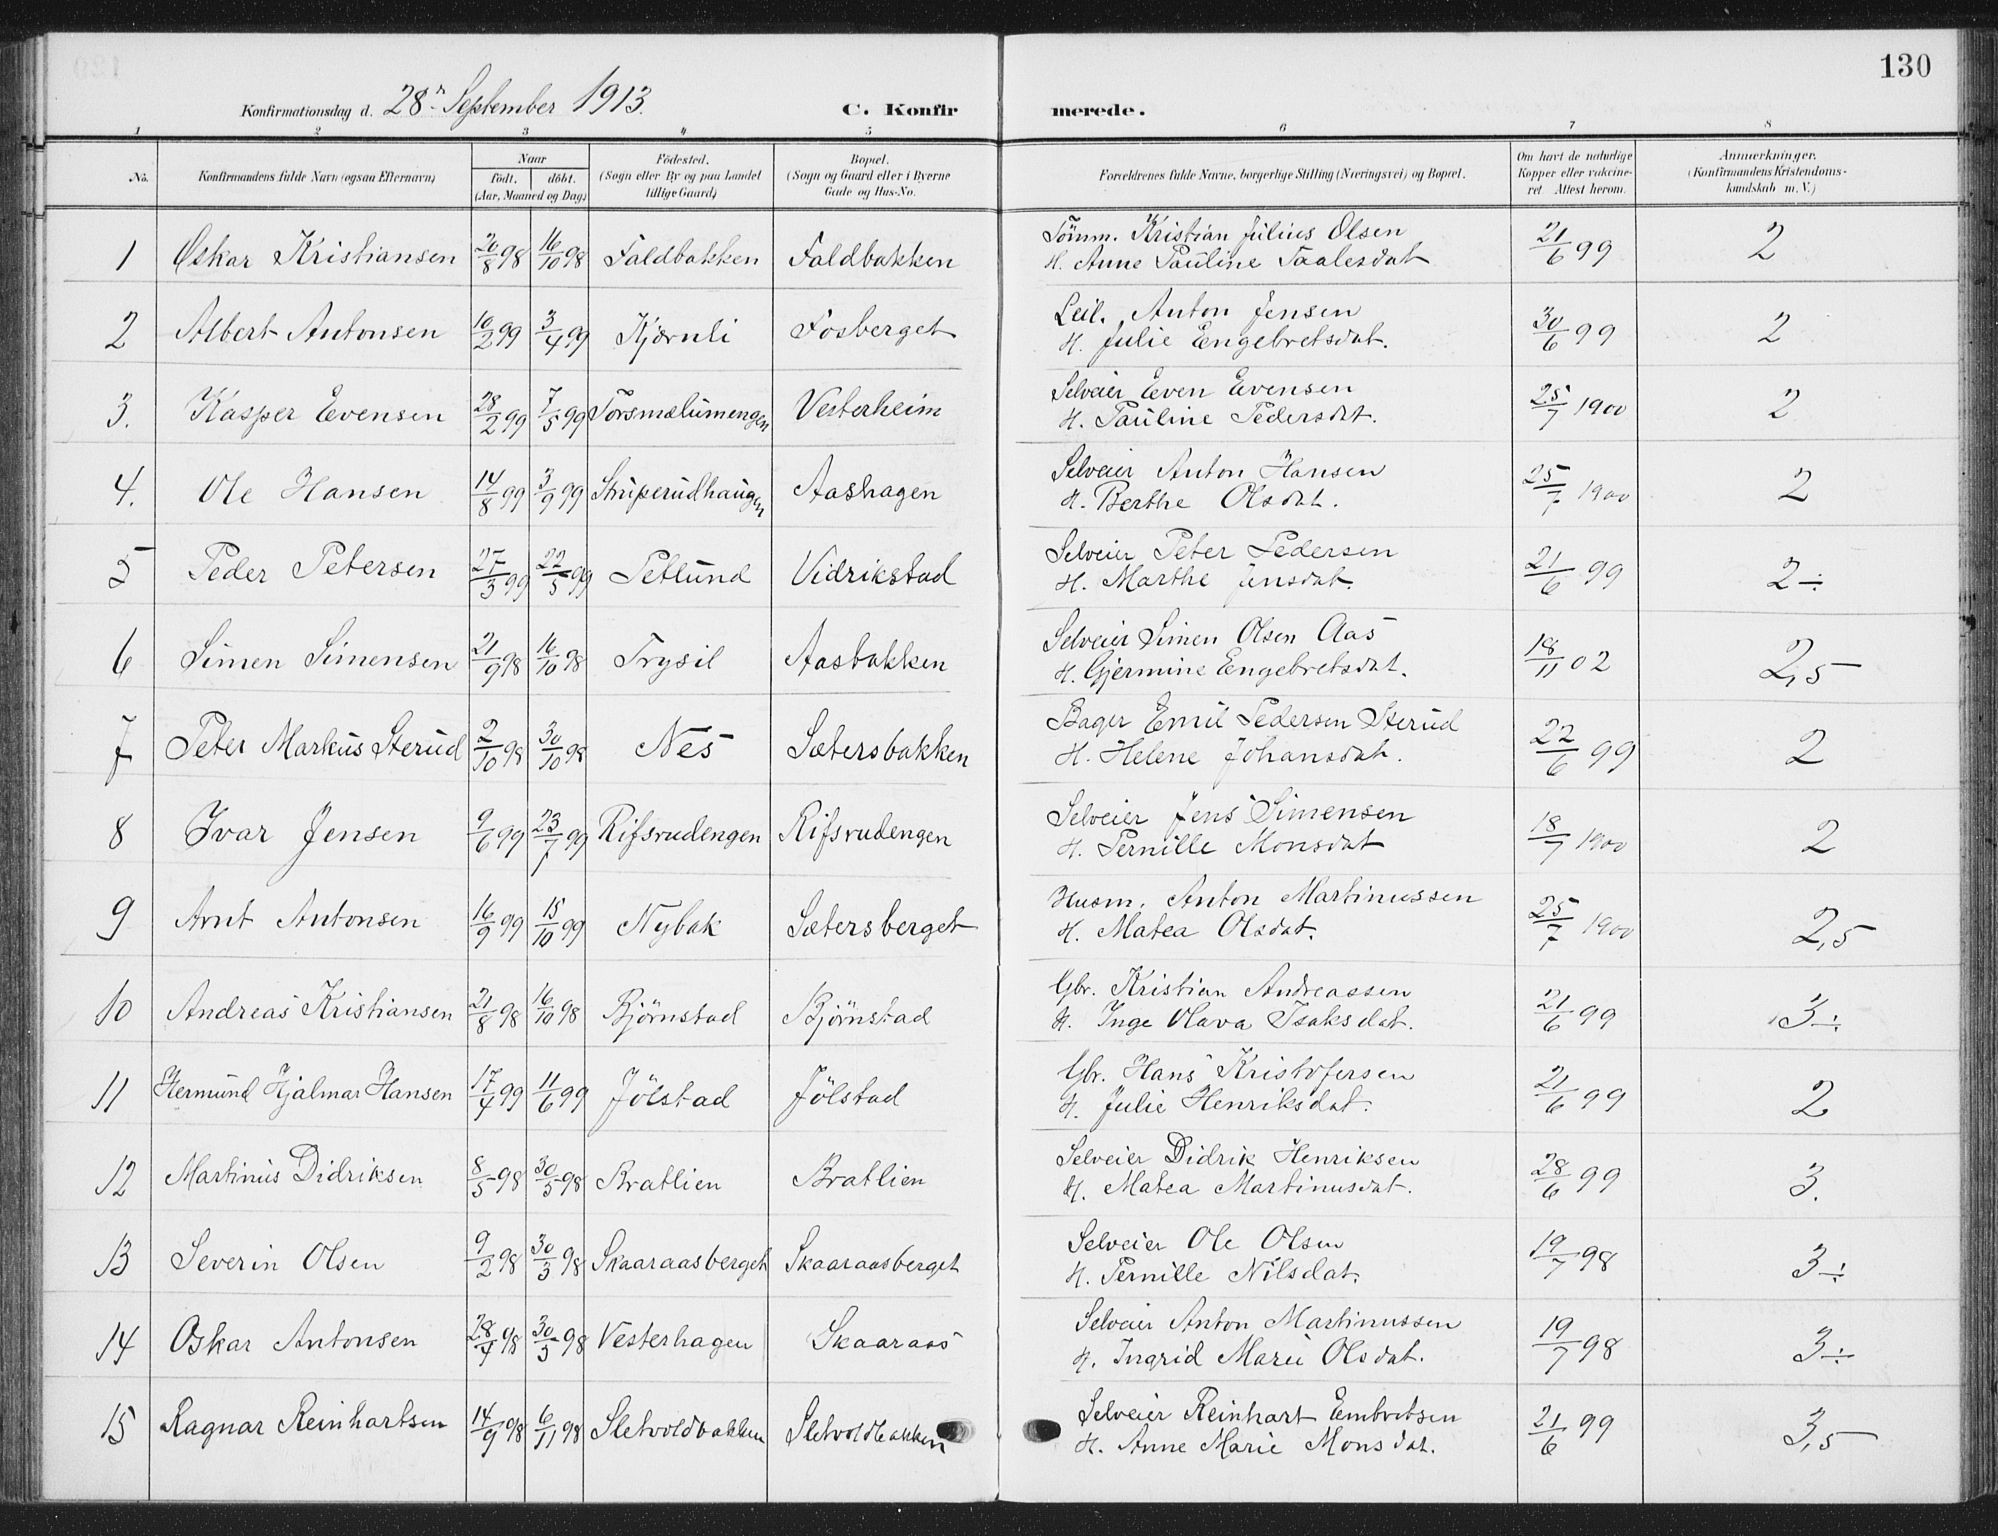 130
Konfirmationsdag d. 28de September 1913. C. Konfirmerede.
1 2 3 4 5 6 7 8
No. Konfirmandens fulde Navn (ogsaa Efternavn) Naar födt. döbt. (Aar, Maaned og Dag) Födested. (Sogn eller By og paa Landet tillige Gaard) Bopæl. (Sogn og Gaard eller i Byerne Gade og Hus-No. Forældrenes fulde Navne, borgerlige Stilling (Næringsvei) og Bopæl. Om havt de naturlige Kopper eller vaccineret. Attest herom. Anmærkninger. (Konfirmandens Kristendomskundskab m. V.)
1 Oskar Kristiansen 26/8 98 16/10 98 Faldbakken Faldbakken Tömm. Kristian Julius Olsen 21/6 99 2
H. Anne Pauline Taalesdat
2 Albert Antonsen 10/2 99 3/4 99 Kjærnli Fosberget Leil. Anton Jensen 30/6 99 2
H. Julie Engebretsdat.
3. Kasper Evensen 28/2 99 7/5 99 Torsmælumengen Vesterheim Selveier Even Evensen 25/7 1900 2
H. Pauline Pedersdat.
4. Ole Hansen 14/8 99 3/9 99 Struperudhaugen Aashagen Selveier Anton Hansen 25/7 1900 2
H. Berthe Olsdat.
5 Peder Petersen 27/3 99 22/5 99 Petlund Vidrikstad Selveier Peter Pedersen 21/6 99 2÷
H. Marthe Jensdat.
6 Simen Simensen 21/9 98 16/10 98 Trysil Aasbakken Selveier Simen Olsen Aas 18/11 02 2,5
H. Gjermine Engebretsdat.
7 Peter Markus Sterud 2/10 98 30/10 98 Nes Sætersbakken Bager Emil Pedersen Sterud 22/6 99 2
H. Helene Johansdat.
8 Ivar Jensen 9/6 99 23/7 99 Rifsrudengen Rifsrudengen Selveier Jens Simensen 18/7 1900 2
H. Pernille Monsdat
9 Arnt Antonsen 16/9 99 15/10 99 Nybak Sætersberget Husm. Anton Martinussen 25/7 1900 2,5
H. Matea Olsdat.
10 Andreas Kristiansen 21/8 98 16/10 98 Björnstad Björnstad Gbr. Kristian Andreassen 21/6 99 3÷
H. Inge Olava Isaksdat.
11 Hermund Hjalmar Hansen 17/4 99 11/6 99 Jölstad Jölstad Gbr. Hans Kristofersen 21/6 99 2
H. Julie Henriksdat.
12 Martinus Didriksen 8/5 98 30/5 98 Bratlien Bratlien Selveier Didrik Henriksen 28/6 99 3.
H. Matea Martinusdat.
13 Severin Olsen 9/2 98 30/3 98 Skaaraasberget Skaaraasberget Selveier Ole Olsen 19/7 98 3÷
H. Pernille Nilsdat.
14 Oskar Antonsen 28/4 98 30/5 98 Vesterhagen Skaaraas Selveier Anton Martinussen 19/7 98 3÷
H. Ingrid Marie Olsdat.
15 Ragnar Reinhartsen 14/9 98 6/11 98 Sletvoldbakken Sletvoldbakken Selveier Reinhart Embretsen 21/6 99 3,5
H. Anne Marie Monsdat.